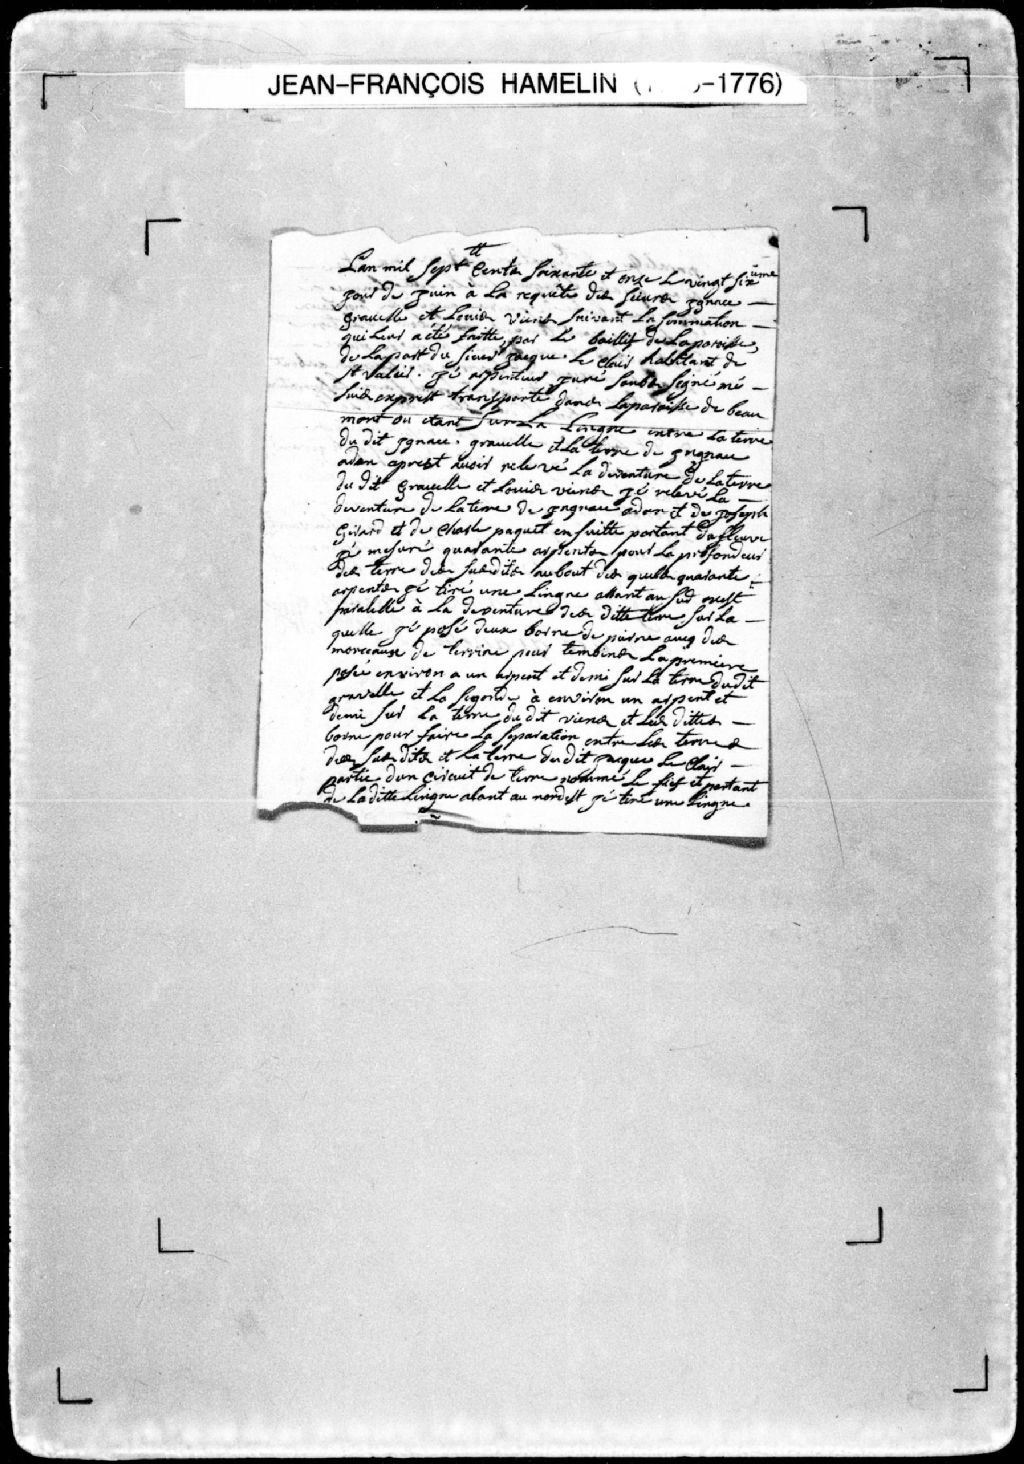 JEAN-FRANÇOIS HAMELIN ( -1776)
tt
Lan mil sept Cents soixante et onze Le vingt sixieme
jour de juin à La requête des sieurs jgnace —
gravelle et Louis viens suivant La sommation —
qui Leur a été faitte par Le baillif de La paroisse,
de La part du sieur jacque Le Clair habitant de
st valier. jé arpenteur juré soubs signé mé —
suis exprest transporté dans La paroisse de beau
mont ou etant sur La Lingne entre La terre
du dit jgnace gravelle et La terre de jngnace
adan aprest avoir relevé La deventure de La terre
du dit gravelle et Louis viens jé relevé La —
deventure de La terre de jngnace adan et de joseph
Girard et de Charle paquet en suitte partant du fleuve
jé mesuré quarante arpents pour La profondeur
des terre des susdits au bout des quels quarante
arpents jé tiré une Lingne allant au sud ouest
paralelle à La deventure des ditte terre sur La —
quelle jé posé deux borne de pierre aveq des
morceaux de terrine pour temoins La premiere
posé environ a un arpent et demi sur La terre du dit
gravelle et La segonde à environ un arpent et
demi sur La terre du dit viens et Les dittes —
borne pour faire La separation entre Les terres
des susdits et La terre du dit jacque Le Clair —
partie dun Circuit de terre nommé Le fief et partant
de La ditte Lingne alant au nordest jé tiré une Lingne